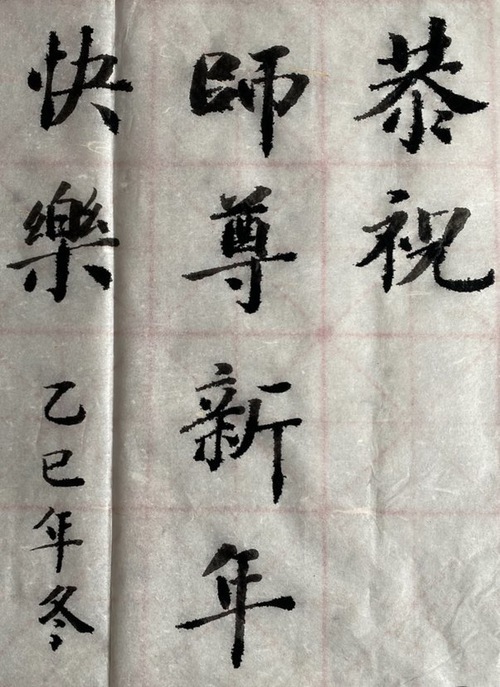 恭祝
師尊新年
快樂
乙巳年冬